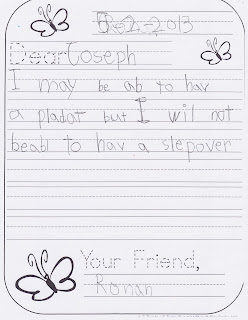 5-2-2013
Dear Joseph
I may be ab to hav
a pladat but I wil not
beabl to hav a slepover
Your Friend,
Ronan